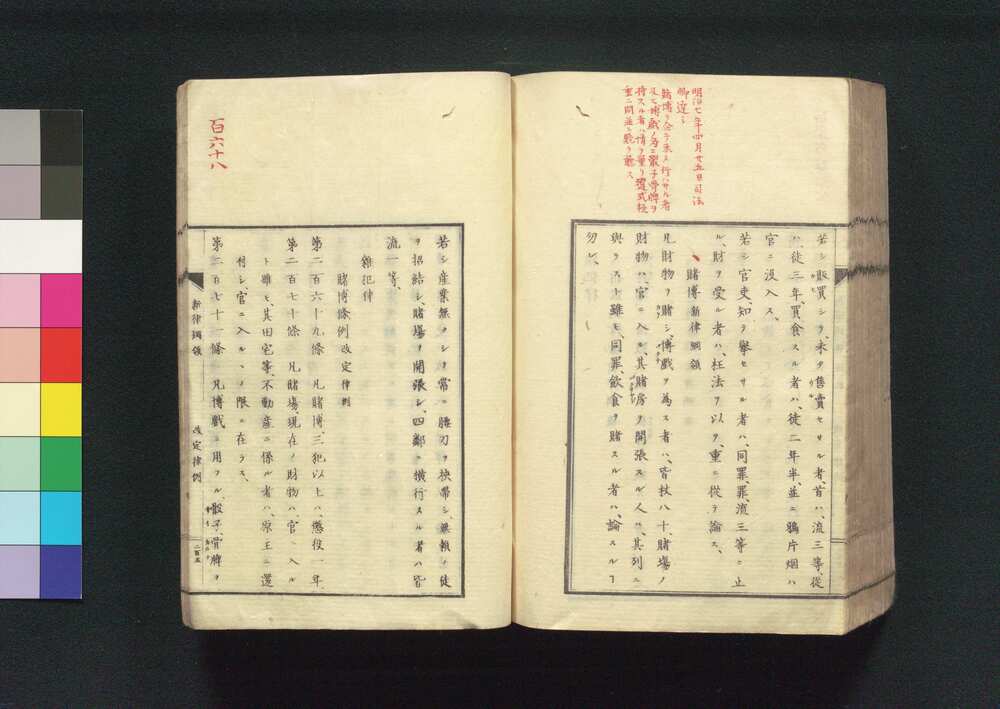 明治七年四月廿五日司法
卿達シ
賭博ノ会ヲ来ス行ハサル者
及ヒ博戯ノ為ニ骰子骨牌ヲ
持スル者ハ情ヲ量リ違式軽
重ニ問並ニ贖ヲ聴ス
若シ販買シテ、未タ售賣セサル者、首ハ、流三等、従
ハ、徒三年、買食スル者ハ、徒二年半、並ニ鴉片烟ハ
官ニ没入ス、
若シ官吏、知テ挙セサル者ハ、同罪、罪、流三等ニ止
ル、財ヲ受ル者ハ、枉法ヲ以テ、重ニ從テ論ス、
賭博 新律綱領
凡財物ヲ賭シ、博戯ヲ為ス者ハ、皆杖八十、賭場ノ
財物ハ、官ニ入ル、其賭房ヲ開張スル人ハ、其列ニ
與ラスト雖モ、同罪、飲食ヲ賭スル者ハ、論スルヿ
勿レ、
若シ産業無クシテ常ニ腰刀ヲ挾帯シ、無頼ノ徒
ヲ招結シ、賭場ヲ開張シ、四鄰ニ横行スル者ハ皆
流一等、
雜犯律
賭博條例 改定律例
第二百六十九條 凡賭博、三犯以上ハ、懲役一年、
第二百七十條 凡賭場、現在ノ財物ハ、官ニ入ル
ト雖モ、其田宅等、不動産ニ係ル者ハ、原主ニ還
付シ、官ニ入ルヽノ限ニ在ラス、
第二百七十一條 凡博戯ニ用フル、骰子、骨牌ヲ
新律綱領 改定律例
二百五
百六十八